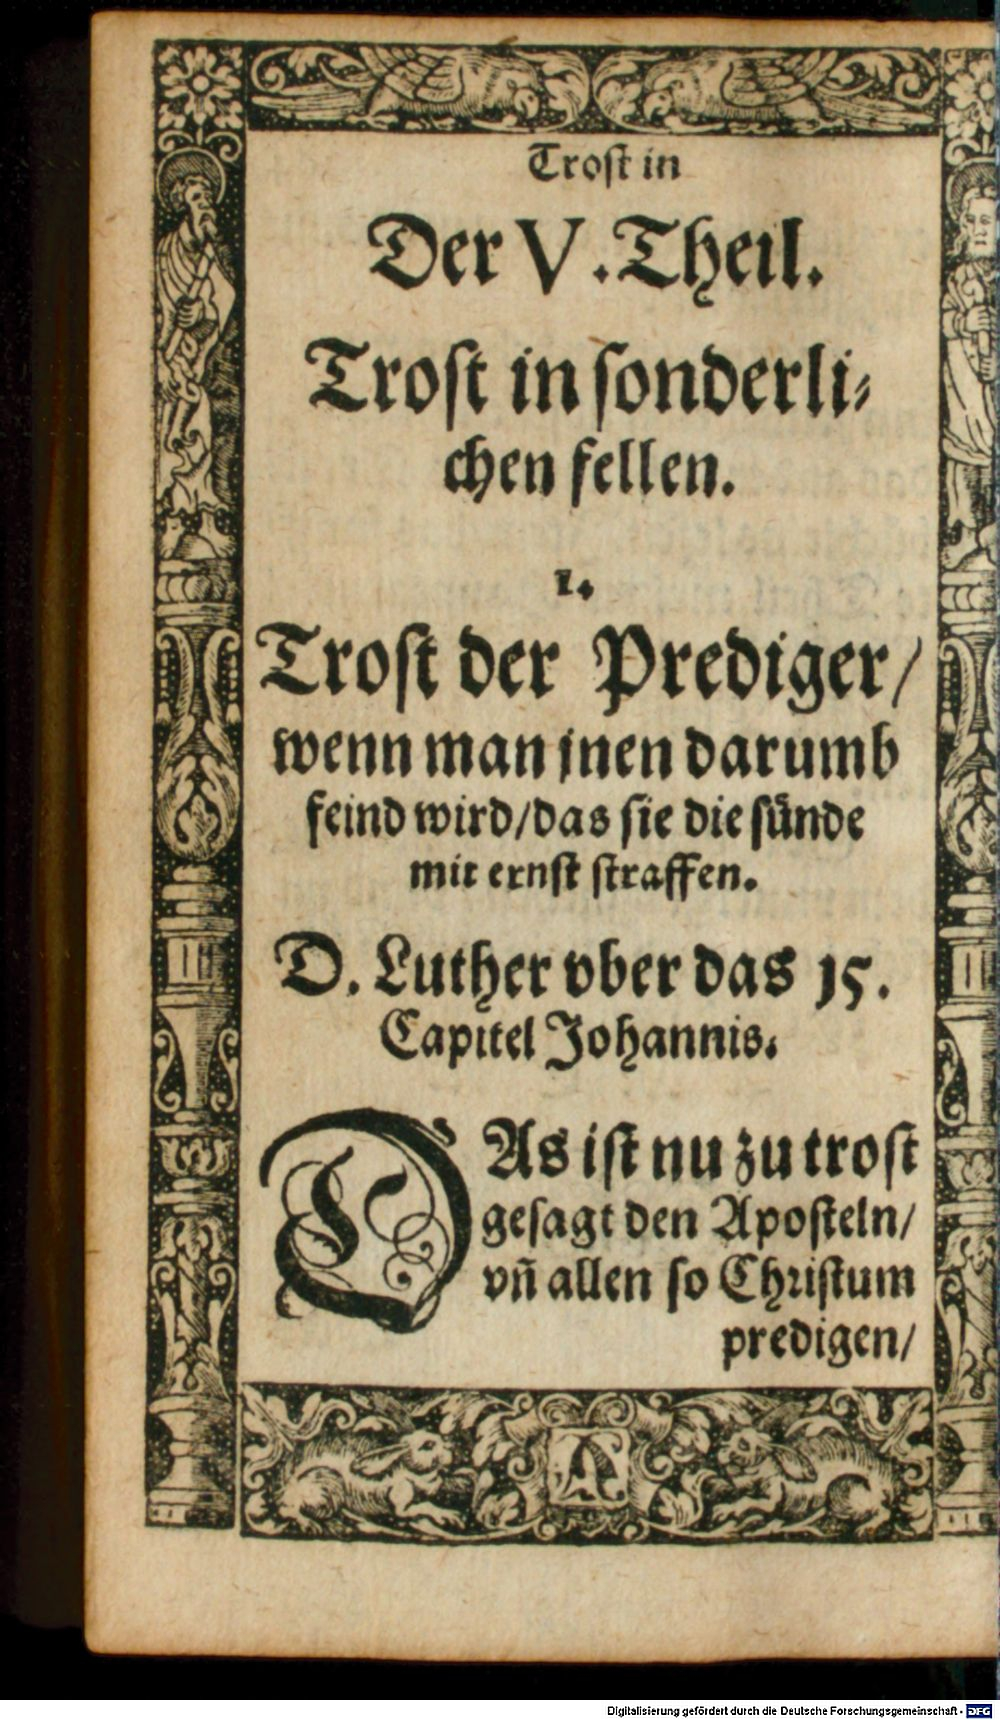 Trost in
Der V. Theil.
Trost in sonderli⸗
chen fellen.
1.
Trost der Prediger/
wenn man jnen darumb
feind wird/das sie die sünde
mit ernst straffen.
D. Luther vber das 15.
Capitel Johannis.
DAs ist nu zu trost
gesagt den Aposteln/
vñ allen so Christum
predigen/
Digitalisierung gefördert durch die Deutsche Forschungsgemeinschaft - DFG